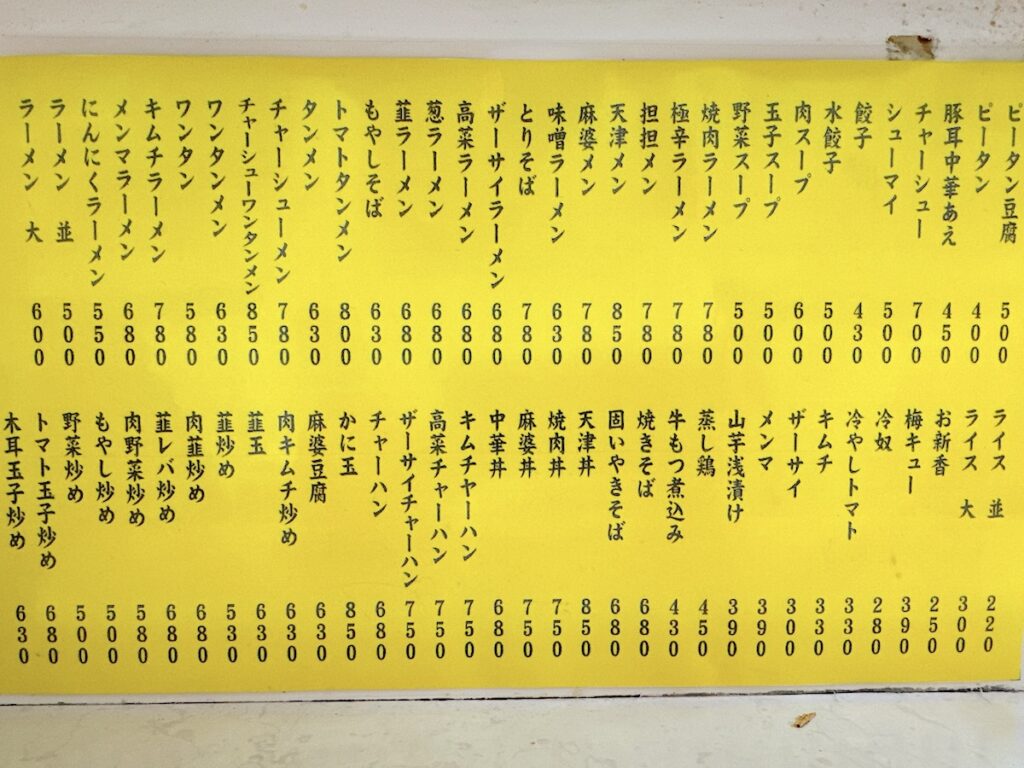 ピータン豆腐 500
ピータン 400
豚耳中華あえ 450
チャーシュー 700
シューマイ 500
餃子 430
水餃子 500
肉スープ 600
玉子スープ 500
野菜スープ 500
焼肉ラーメン 780
極辛ラーメン 780
担担メン 780
天津メン 850
麻婆メン 780
味噌ラーメン 630
とりそば 780
ザーサイラーメン 680
高菜ラーメン 680
葱ラーメン 680
韮ラーメン 680
もやしそば 630
トマトタンメン 800
タンメン 630
チャーシューメン 780
チャーシューワンタンメン 850
ワンタンメン 630
ワンタン 580
キムチラーメン 780
メンマラーメン 680
にんにくラーメン 550
ラーメン 並 500
ラーメン 大 600
ライス 並 220
ライス 大 300
お新香 250
梅キュー 390
冷奴 280
冷やしトマト 330
キムチ 330
ザーサイ 300
メンマ 390
山芋浅漬け 390
蒸し鶏 450
牛もつ煮込み 430
焼きそば 680
固いやきそば 680
天津丼 850
焼肉丼 750
麻婆丼 750
中華丼 680
キムチヤーハン 750
高菜チャーハン 750
ザーサイチャーハン 750
チャーハン 680
かに玉 850
麻婆豆腐 630
肉キムチ炒め 630
韮玉 630
韮炒め 530
肉韮炒め 680
韮レバ炒め 680
肉野菜炒め 580
もやし炒め 500
野菜炒め 500
トマト玉子炒め 680
木耳玉子炒め 630